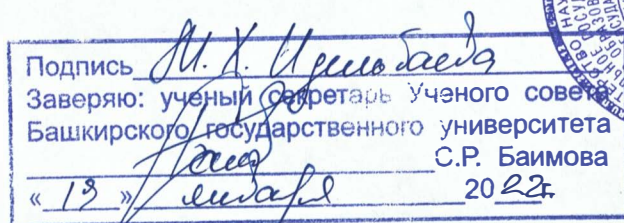 Подпись М. Х. Идельбаева
Заверяю: ученый секретарь Ученого совета
Башкирского государственного университета
С.Р. Баимова
« 13 » января 2022г.